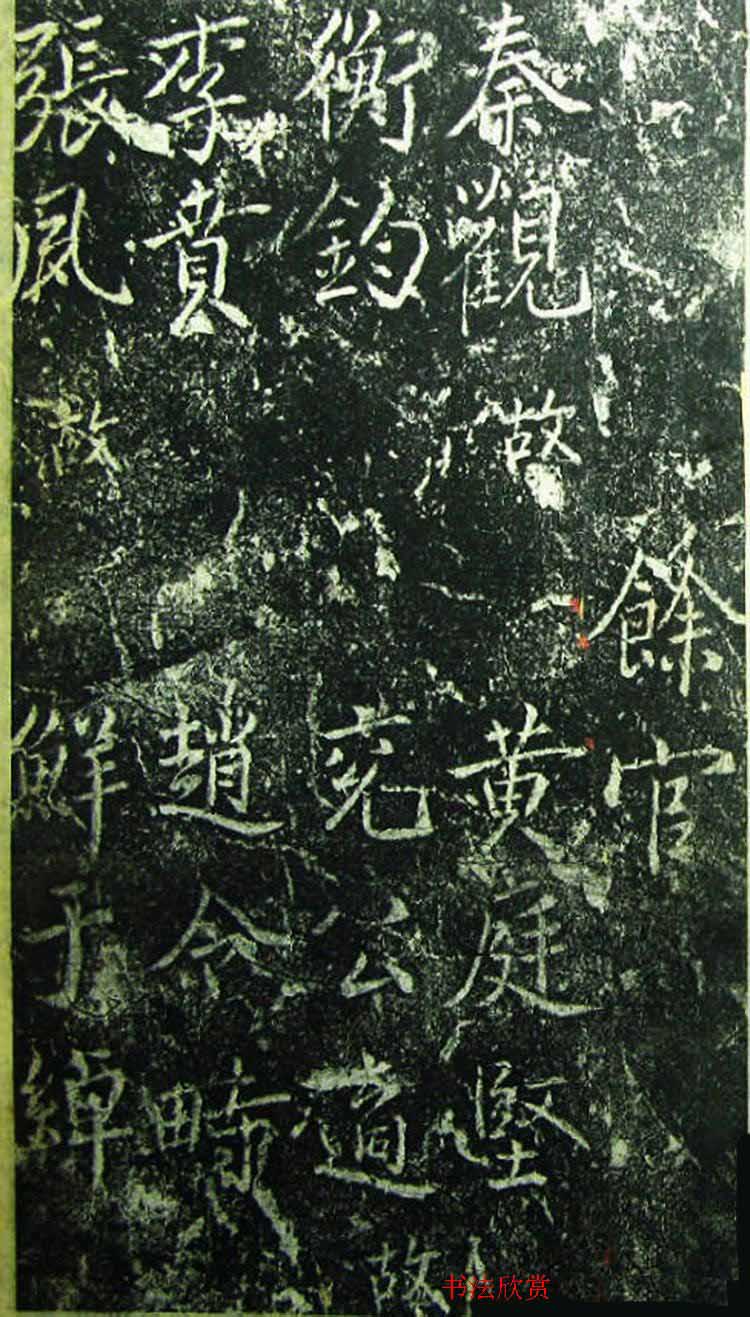 餘官
秦觀故黄庭堅
衡鈞兖公適故
李賁趙令畤
張夙故鮮于綽
书法欣赏